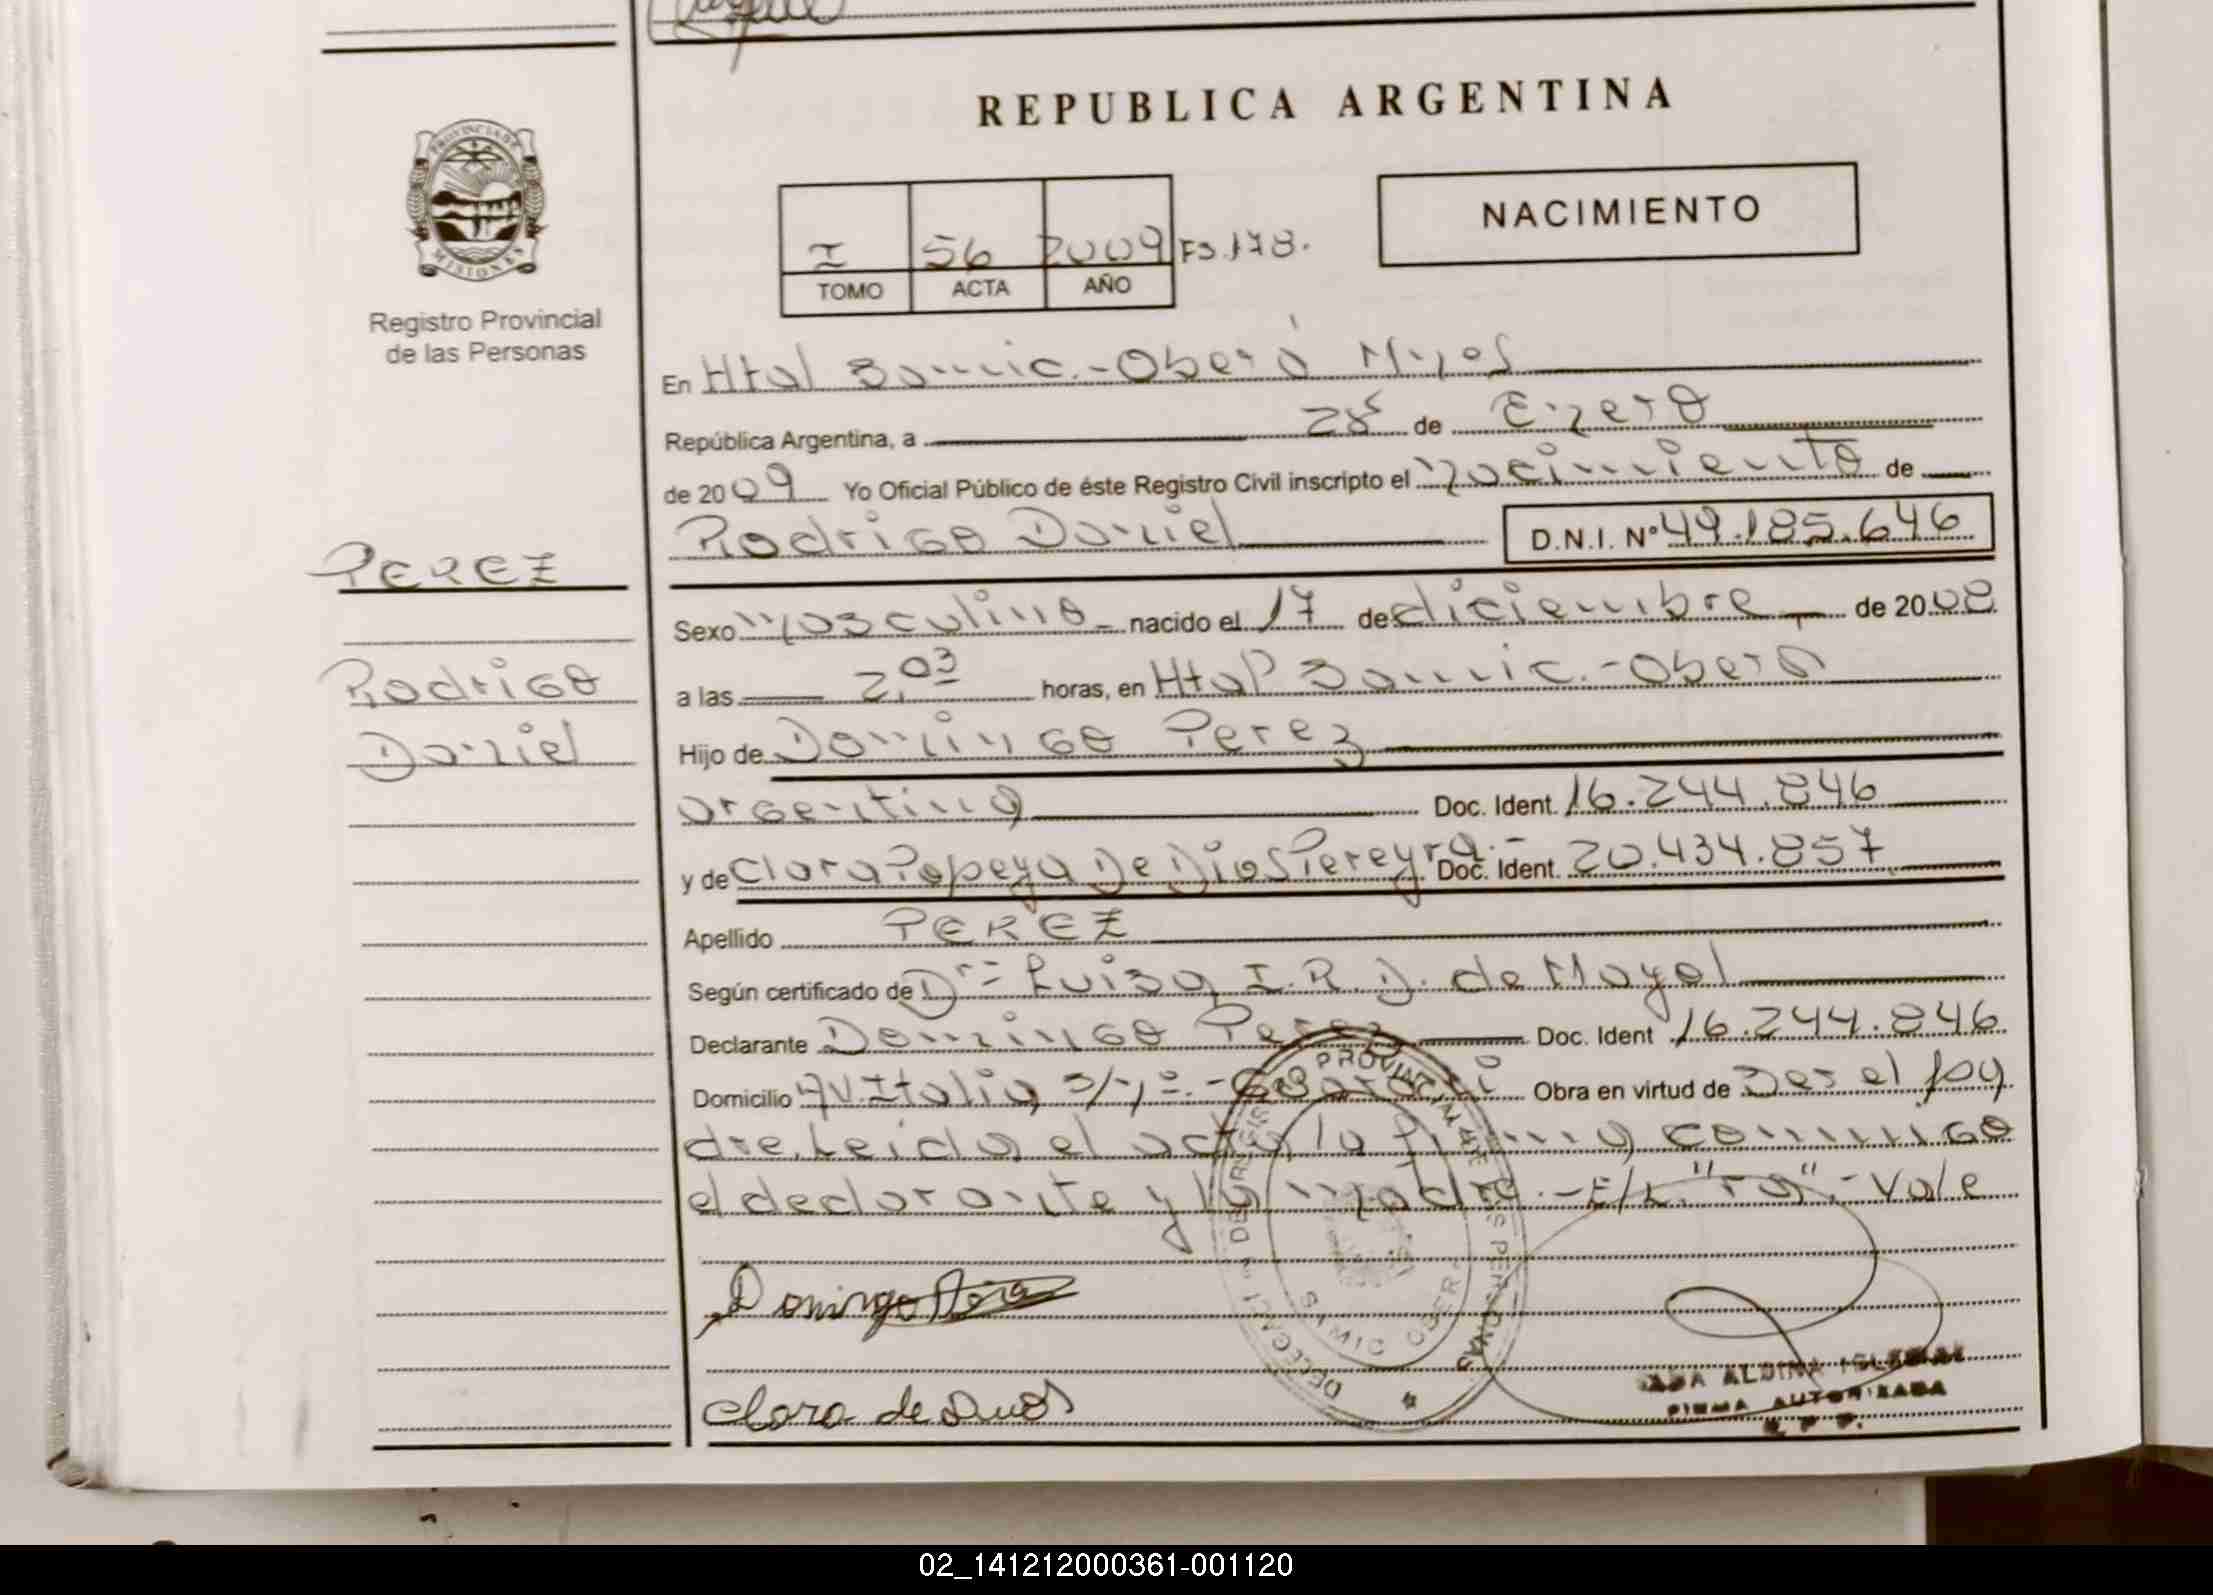 REPUBLICA ARGENTINA
PROVINCIA DE
MISIONES
Registro Provincial
de las Personas
NACIMIENTO
I 56 2009 Fs.178.
TOMO ACTA AÑO
En Htal Samic.-Oberá Mnes
República Argentina, a 28 de Enero
de 2009 Yo Oficial Público de éste Registro Civil inscripto el nacimiento de
Rodrigo Daniel D.N.I. Nº 49.185.646
PEREZ
Rodrigo
Daniel
Sexo masculino nacido el 17 de diciembre de 2008
a las 2,03 horas, en Htal Samic.-Oberá
Hijo de Domingo Perez
argentina Doc. Ident. 16.244.846
y de Clara Popeya De Dios Pereyra.- Doc. Ident. 20.434.857
Apellido PEREZ
Según certificado de Dra Luisa I.R.D. de Moyal
Declarante Domingo Perez Doc. Ident 16.244.846
Domicilio AV.Italia s/nº.- Obra en virtud de Ser el pa
dre.Leida el acta la firma conmigo
el declarante y la madre.-E/L."ra".-Vale
Domingo
Clara de Dios
ALDINA
FIRMA AUTORIZADA
R. P. P.
02_141212000361-001120